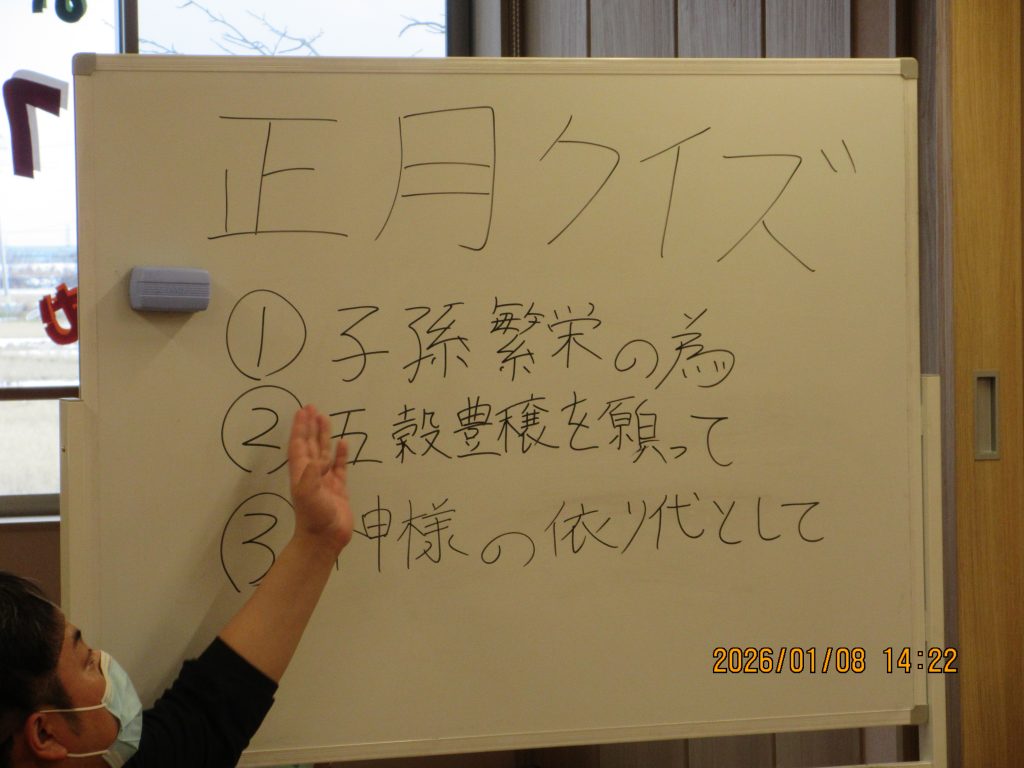 正月クイズ
① 子孫繁栄の為
② 五穀豊穣を願って
③ 神様の依り代として
2026/01/08 14:22